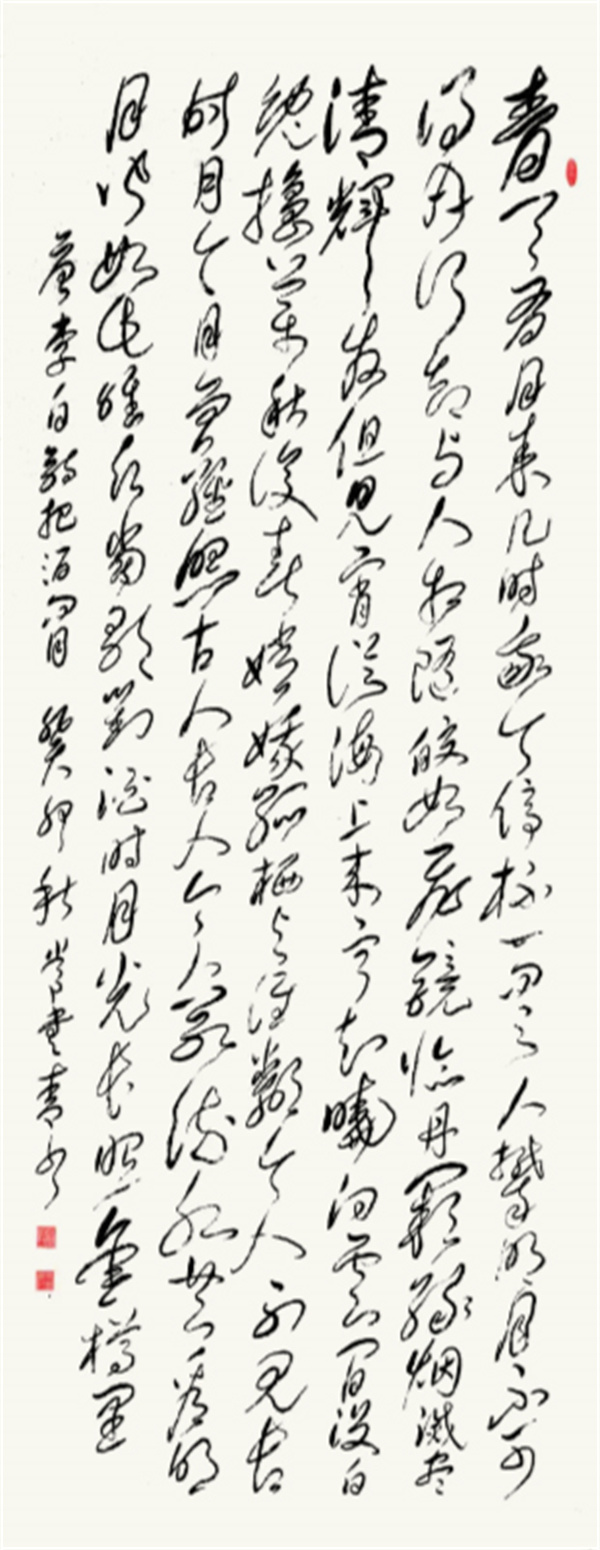 青天有月来几时我今停杯一问之人攀明月不可
得月行却与人相随皎如飛镜临丹阙绿烟滅尽
清輝发但见宵從海上来宁知曉向云间没白
兔擣药秋復春嫦娥孤栖与谁鄰今人不见古
时月今月曾經照古人古人今人若流水共看明
月皆如此唯願當歌對酒时月光长照金樽里
唐李白詩把酒问月 癸卯秋 書